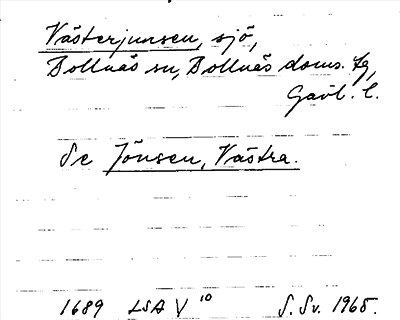 Västerjunsen, sjö,
Bollnäs sn, Bollnäs doms. fg,
Gävl. l.
Se Jönsen, Västra.
1689 LSA V 10 S. Sv. 1965.